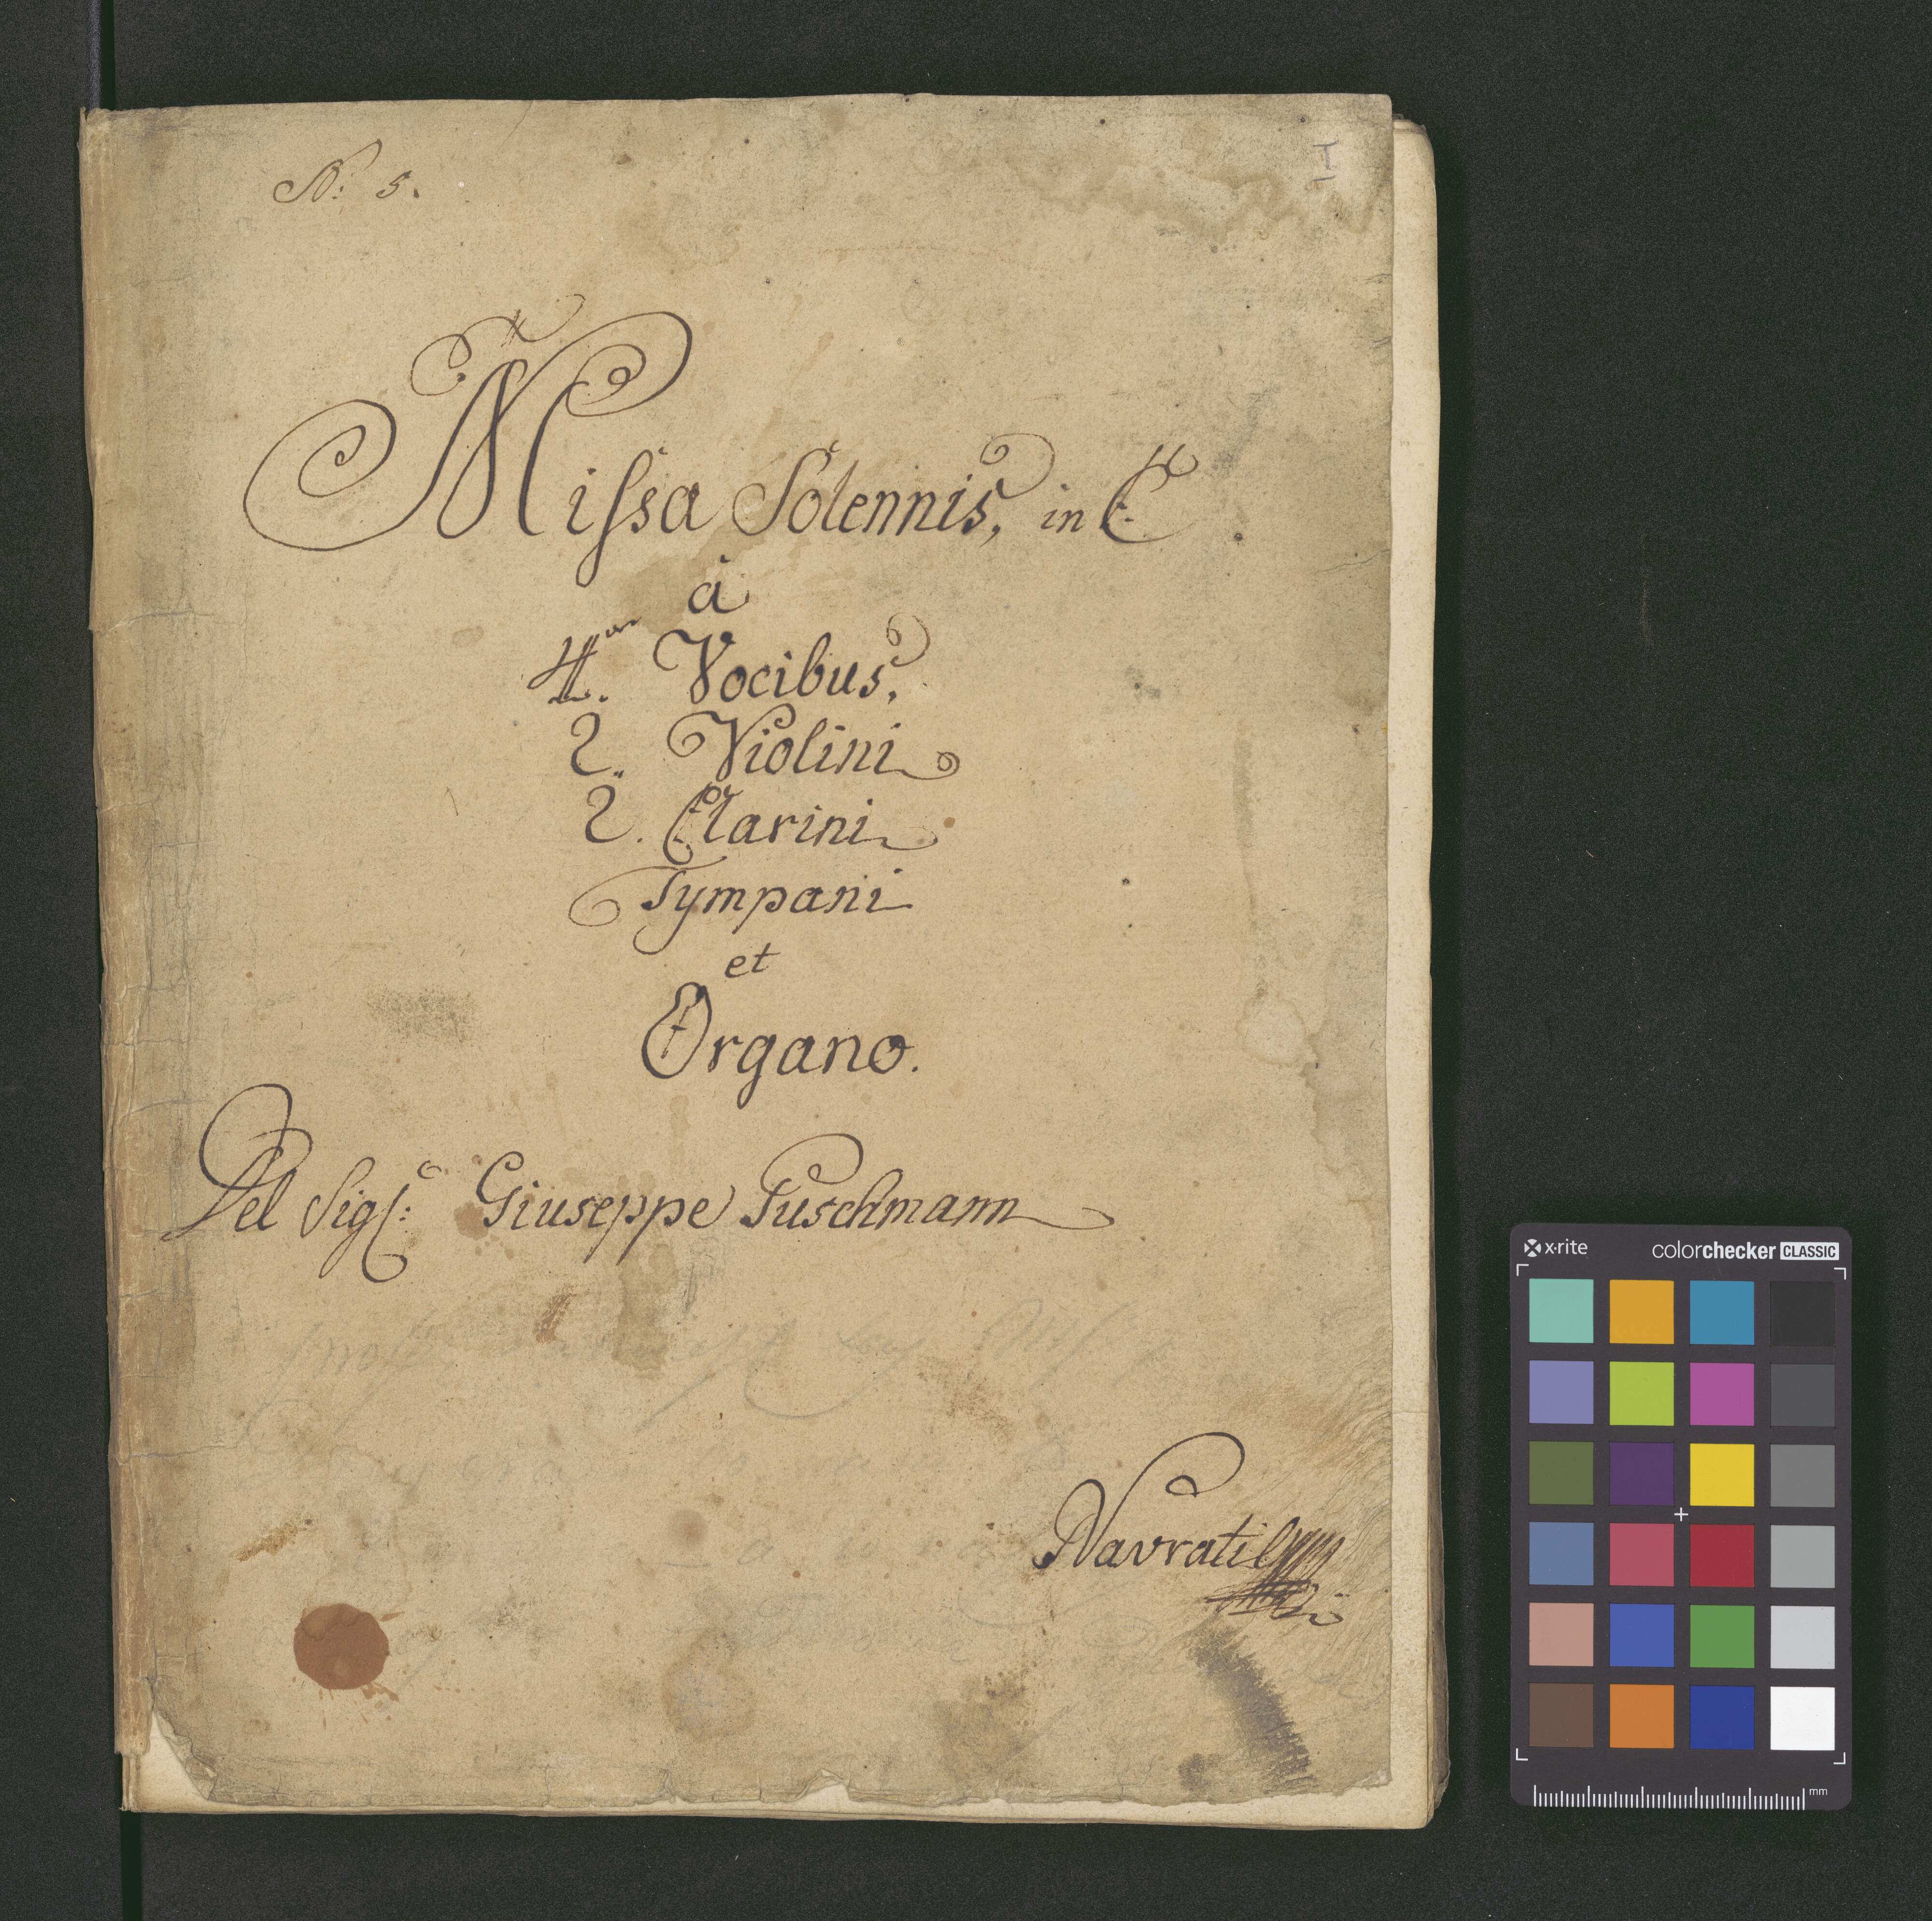 N: 5.
I
Missa Solennis, in C
à
4. Vocibus,
2. Violini
2. Clarini
Tympani
et
Organo.
Del Sig: Giuseppe Puschmann
Navratil
x-rite
colorchecker CLASSIC
mm